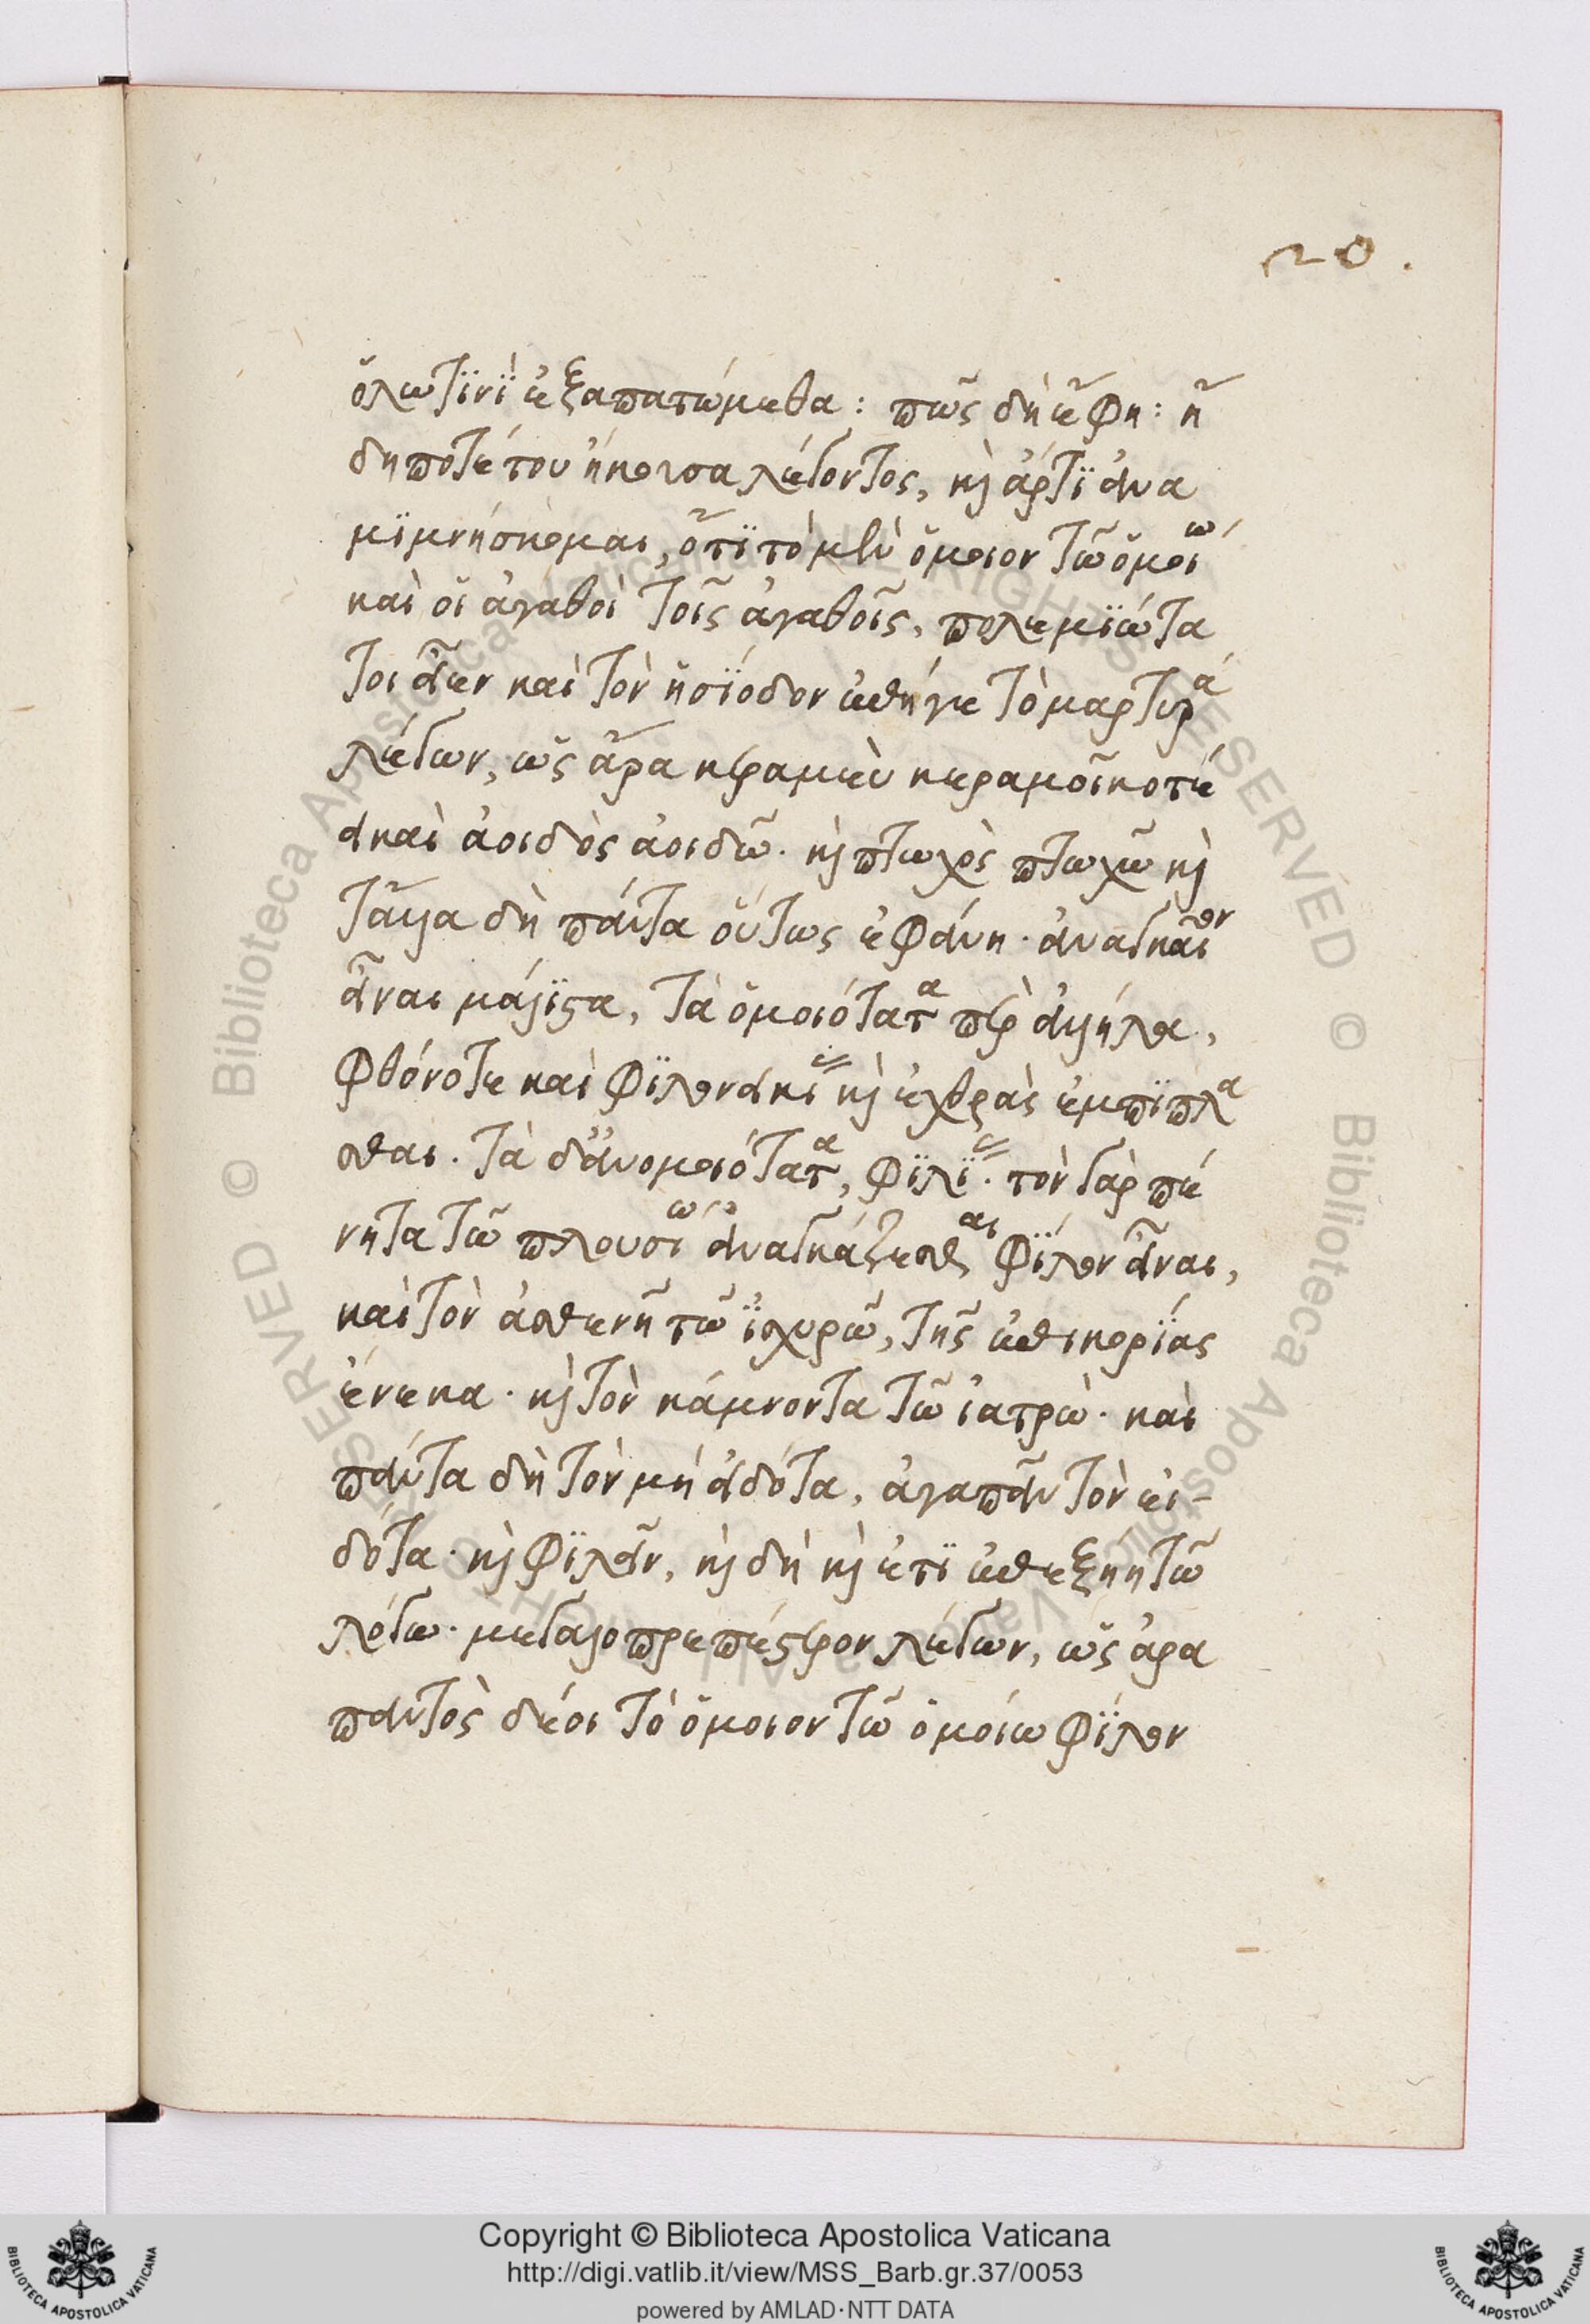 20.
ὅλω τινὶ ἐξαπατώμεθα: πῶς δὴ ἔφη: ἤ
δη ποτέ του ἤκουσα λέγοντος, καὶ ἄρτι ἀνα
μιμνήσκομαι, ὅτι τὸ μὲν ὅμοιον τῶ ὁμοίω
καὶ οἱ ἀγαθοὶ τοῖς ἀγαθοῖς, πολεμιώτα
τοι εἶεν καὶ τὸν ἡσίοδον ἐπήγετο μάρτυρα
λέγων, ὡς ἄρα κεραμεὺ κεραμοῖ κοτέ
ει καὶ ἀοιδὸς ἀοιδῶ. καὶ πτωχὸς πτωχῶ καὶ
τἄλλα δὴ πάντα οὕτως ἐφάνη. ἀναγκαῖον
εἶναι μάλιστα, τὰ ὁμοιότατα περὶ ἄλληλα,
φθόνου τε καὶ φιλονεικίας καὶ ἐχθρὰς ἐμπίπλα
σθαι. τὰ δ' ἀνομοιότατα, φιλίας. τὸν γὰρ πέ
νητα τῶ πλουσίω ἀναγκάζεσθαι φίλον εἶναι,
καὶ τὸν ἀσθενῆ τῶ ἰσχυρῶ, τῆς ἐπικορίας
ἕνεκα. καὶ τὸν κάμνοντα τῶ ἰατρῶ. καὶ
πάντα δὴ τὸν μὴ εἰδότα, ἀγαπᾶν τὸν εἰ-
δότα. καὶ φιλεῖν, καὶ δὴ καὶ ἔτι ἐπεξήει τῶ
λόγω. μεγαλοπρεπέστερον λέγων, ὡς ἄρα
παντὸς δέοι τὸ ὅμοιον τῶ ὁμοίω φίλον
Copyright © Biblioteca Apostolica Vaticana
http://digi.vatlib.it/view/MSS_Barb.gr.37/0053
powered by AMLAD·NTT DATA